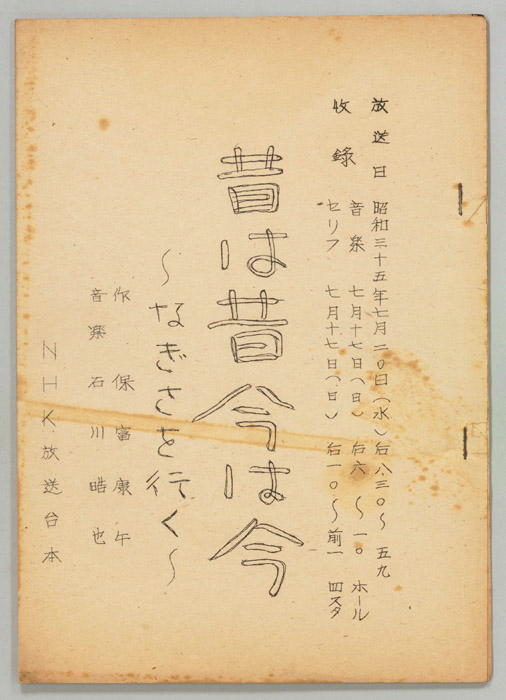 放送日 昭和三十五年七月二〇日(水)后八.三〇~五九
收録 音楽 七月十七日(日)后六~一〇 ホール
セリフ 七月十七日(日)后一〇~前一 四スタ
昔は昔今は今
~なぎさを行く~
作 保富康午
音楽 石川皓也
NHK放送台本